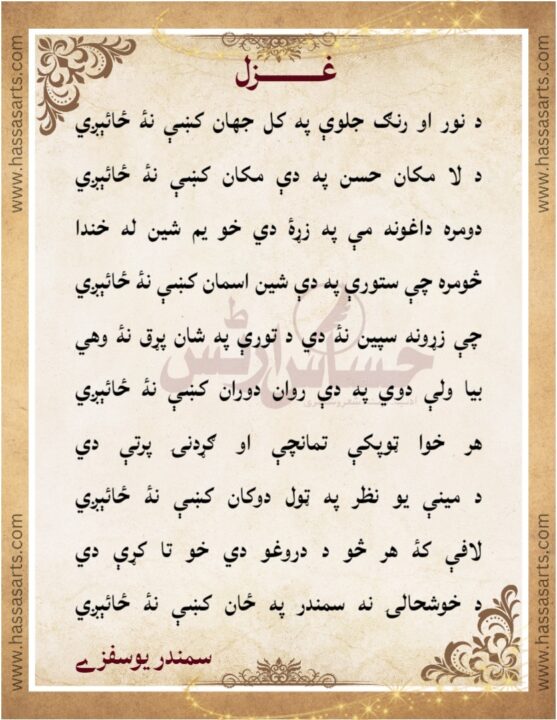 غـــــزل
د نور او رنګ جلوې په کل جهان کښې نۀ ځائېږي
د لا مکان حسن په دې مکان کښې نۀ ځائېږي
دومره داغونه مې په زړۀ دي خو يم شين له خندا
څومره چې ستورې په دې شين اسمان کښې نۀ ځائېږي
چې زړونه سپين نۀ دي د تورې په شان پړق نۀ وهي
بيا ولې دوي په دې روان دوران کښې نۀ ځائېږي
هر خوا ټوپکې تمانچې او ګړدنى پرتې دي
د مينې يو نظر په ټول دوکان کښې نۀ ځائېږي
لافې کۀ هر څو د دروغو دي خو تا کړې دي
د خوشحالى نه سمندر په ځان کښې نۀ ځائېږي
سمندر يوسفزے
حساس آرٹس
www.hassasarts.com
www.hassasarts.com
www.hassasarts.com
www.hassasarts.com